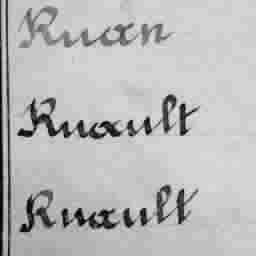 Ruan
Ruault
Ruault